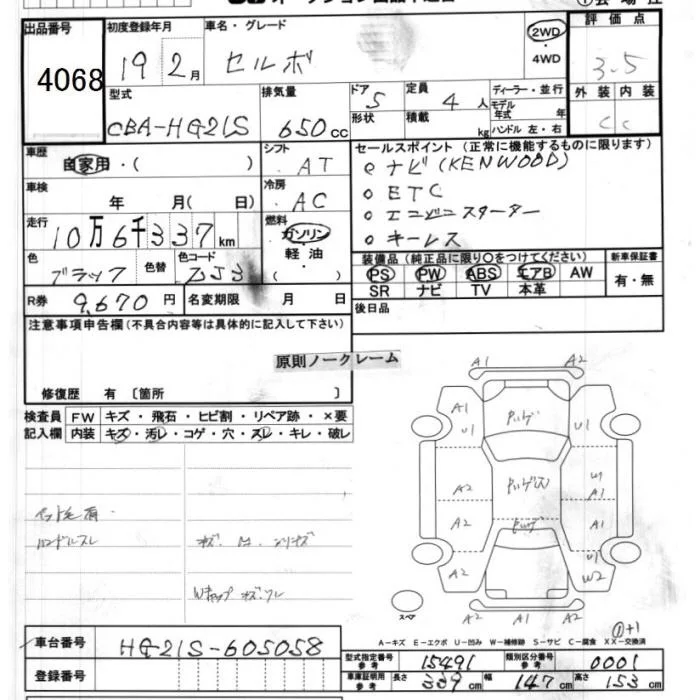 出品番号
4068
初度登録年月
19 2月
車名・グレード
セルボ
2WD
・
4WD
評価点
3.5
外装 内装
C C
型式
CBA-HG21S
排気量
650cc
ドア
5
形状
定員
4人
積載
kg
ディーラー・並行
モデル
年式
年
ハンドル左・右
車歴
自家用・( )
シフト
AT
車検
年 月( 日)
冷房
AC
走行
10万6千337km
燃料
ガソリン
・
軽油
( )
色
ブラック
色替
色コード
ZJ3
R券
9,670円
名変期限
月 日
セールスポイント(正常に機能するものに限ります)
○ナビ(KENWOOD)
○ETC
○エンジンスターター
○キーレス
装備品(純正品に限り〇をつけてください)
新車保証書
PS PW ABS エアB AW
SR ナビ TV 本革
有・無
後日品
注意事項申告欄(不具合内容等は具体的に記入して下さい)
原則ノークレーム
修復歴 有〔箇所 〕
検査員
記入欄
FW キズ・飛石・ヒビ割・リペア跡・×要
内装 キズ・汚レ・コゲ・穴・スレ・キレ・破レ
ペット毛有
ハンドルスレ
A1 A2
A1
U1
U1
A2
A2
A1
A1
U1
A2
W2
A2 A2
スペア
①+1
A-キズ E-エクボ U-凹み W-補修跡 S-サビ C-腐食 XX-交換済
車台番号
HG21S-605058
登録番号
型式指定番号
参考
15491
類別区分番号
参考
0001
車庫証明用
参考
長さ
339cm
幅
147cm
高さ
153cm